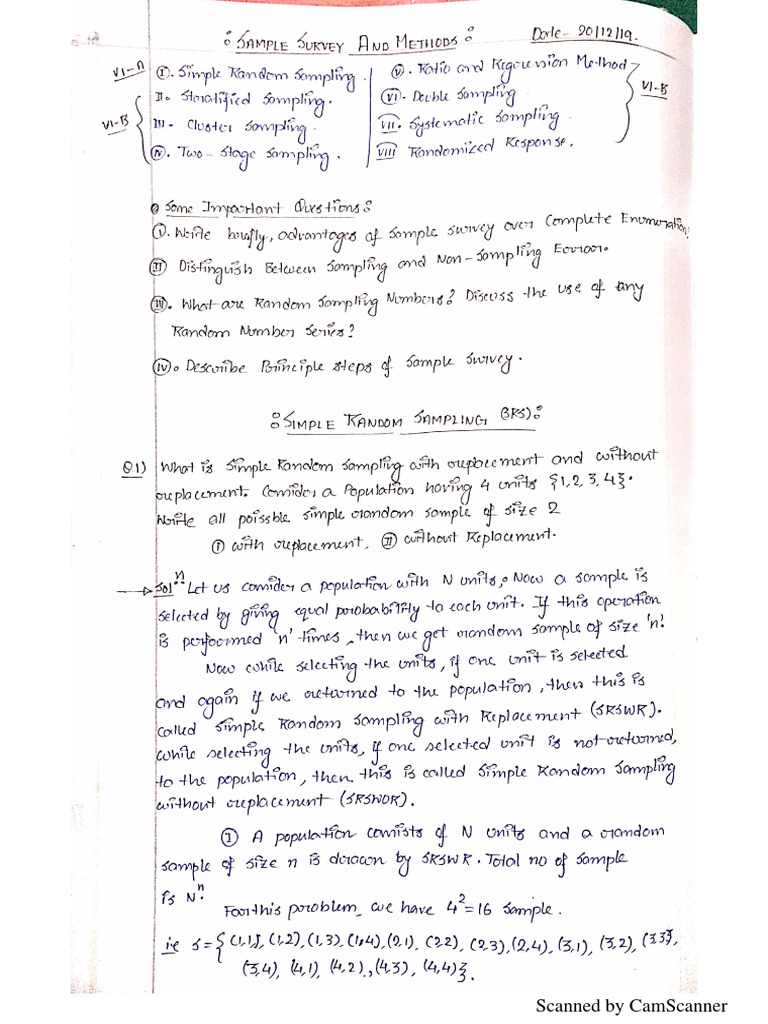 : SAMPLE SURVEY AND METHODS : Date- 20/12/19.
VI-A I. Simple Random Sampling. V. Ratio and Regression Method
II. Stratified Sampling. VI. Double Sampling VI-B
VI-B III. Cluster Sampling. VII. Systematic Sampling.
IV. Two-Stage Sampling. VIII Randomized Response.
Some Important Questions:
I. Write briefly, advantages of sample survey over Complete Enumeration.
II Distinguish Between Sampling and Non-Sampling Error.
III. What are Random Sampling Numbers? Discuss the use of any
Random Number Series?
IV. Describe Principle steps of sample survey.
: SIMPLE RANDOM SAMPLING (SRS):
Q1) What is Simple Random Sampling with replacement and without
replacement. Consider a Population having 4 units {1, 2, 3, 4}.
Write all poissble simple random sample of size 2
I with replacement. II without Replacement.
→ Solⁿ: Let us consider a population with N units. Now a sample is
selected by giving equal probability to each unit. If this operation
is performed 'n' times, then we get random sample of size 'n'.
Now while selecting the units, if one unit is selected
and again if we returned to the population, then this is
called Simple Random Sampling with Replacement (SRSWR).
while selecting the units, if one selected unit is not returned,
to the population, then this is called Simple Random Sampling
without replacement (SRSWOR).
① A population consists of N units and a random
sample of size n is drawn by SRSWR. Total no of sample
is Nⁿ.
For this problem, we have 4²=16 sample.
ie S={(1,1), (1,2), (1,3), (1,4), (2,1), (2,2), (2,3), (2,4), (3,1), (3,2), (3,3),
(3,4), (4,1), (4,2), (4,3), (4,4)}.
Scanned by CamScanner